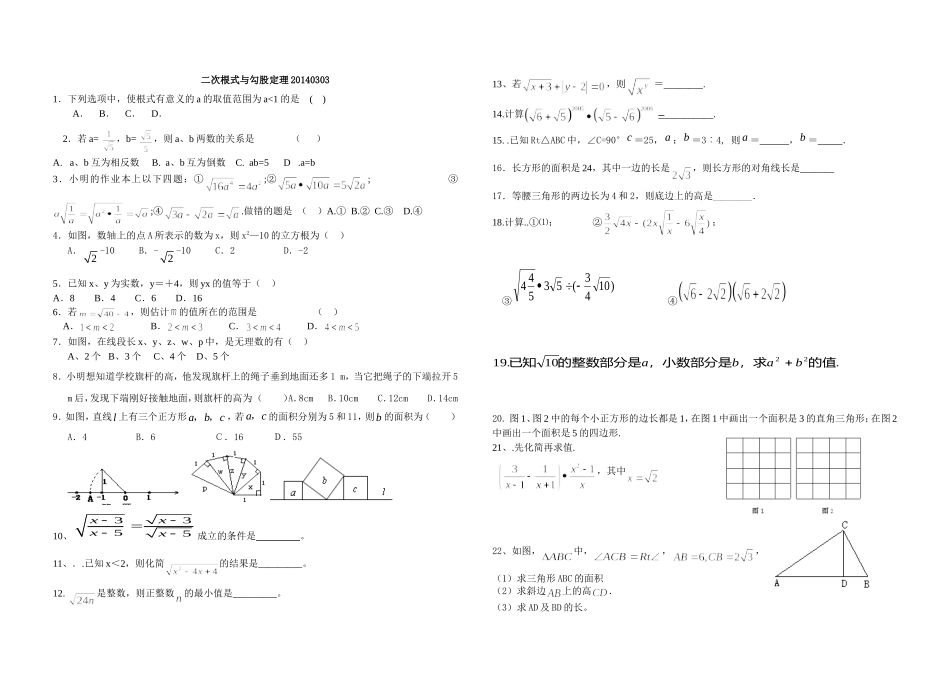 二次根式与勾股定理 20140303
1. 下列选项中，使根式有意义的 a 的取值范围为 a<1 的是 ( )
A. B. C. D.
2. 若 a= 1/√5 ，b= √5/5 ，则 a、b 两数的关系是 （ ）
A. a、b 互为相反数 B. a、b 互为倒数 C. ab=5 D .a=b
3. 小明的作业本上以下四题：① √16a⁴=4a² ;② √5a•√10a=5√2a ; ③
a√(1/a)=√(a²•1/a)=√a ;④ √3a−√2a=√a .做错的题是 （ ）A.① B.② C.③ D.④
4. 如图，数轴上的点 A 所表示的数为 x，则 x²—10 的立方根为（ ）
A. √2 -10 B. - √2 -10 C. 2 D. -2
5. 已知 x、y 为实数，y＝＋4，则 yx 的值等于（ ）
A. 8 B. 4 C. 6 D. 16
6. 若 m=√40−4 ，则估计 m 的值所在的范围是 （ ）
A. 1<m<2 B. 2<m<3 C. 3<m<4 D. 4<m<5
7. 如图，在线段长 x、y、z、w、p 中，是无理数的有（ ）
A、2 个 B、3 个 C、4 个 D、5 个
8. 小明想知道学校旗杆的高，他发现旗杆上的绳子垂到地面还多 1 m，当它把绳子的下端拉开 5
m 后，发现下端刚好接触地面，则旗杆的高为（ ）A.8cm B.10cm C.12cm D.14cm
9. 如图，直线 l 上有三个正方形 a，b，c ，若 a，c 的面积分别为 5 和 11，则 b 的面积为（ ）
A. 4 B. 6 C. 16 D. 55
-2 A -1 0 1
1
p w z y x 1 1 1 1 1 1
a b c l
10、 √((x−3)/(x−5)) = √(x−3)/√(x−5) 成立的条件是_________。
11、. .已知 x＜2，则化简 √(x²−4x+4) 的结果是_________。
12. √24n 是整数，则正整数 n 的最小值是_________。
13、若 √(x+3)+|y−2|=0 ，则 √(x^y) ＝________.
14.计算 (√6+√5)²⁰⁰⁵•(√5−√6)²⁰⁰⁶ =__________.
15. .已知 Rt△ABC 中，∠C=90° c =25， a ：b =3：4, 则 a =______, b =_____.
16. 长方形的面积是 24，其中一边的长是 2√3 ，则长方形的对角线长是_______
17. 等腰三角形的两边长为 4 和 2，则底边上的高是________.
18.计算..①⑴； ② (3/2)√4x−(2x√(1/x)−6√(x/4)) ;
③ 4√(4/5)•3√5÷(−(3/4)√10) ④ (√6−2√2)(√6+2√2)
19.已知√10的整数部分是a，小数部分是b，求a²+b²的值.
20. 图 1、图 2 中的每个小正方形的边长都是 1，在图 1 中画出一个面积是 3 的直角三角形；在图 2
中画出一个面积是 5 的四边形.
21、.先化简再求值.
(3/(x−1) − 1/(x+1))•(x²−1)/x ，其中 x=√2
图 1 图 2
22、如图， ΔABC 中， ∠ACB=Rt∠ ， AB=6,CB=2√3 ，
(1) 求三角形 ABC 的面积
(2) 求斜边 AB 上的高 CD .
(3) 求 AD 及 BD 的长。
C
A D B